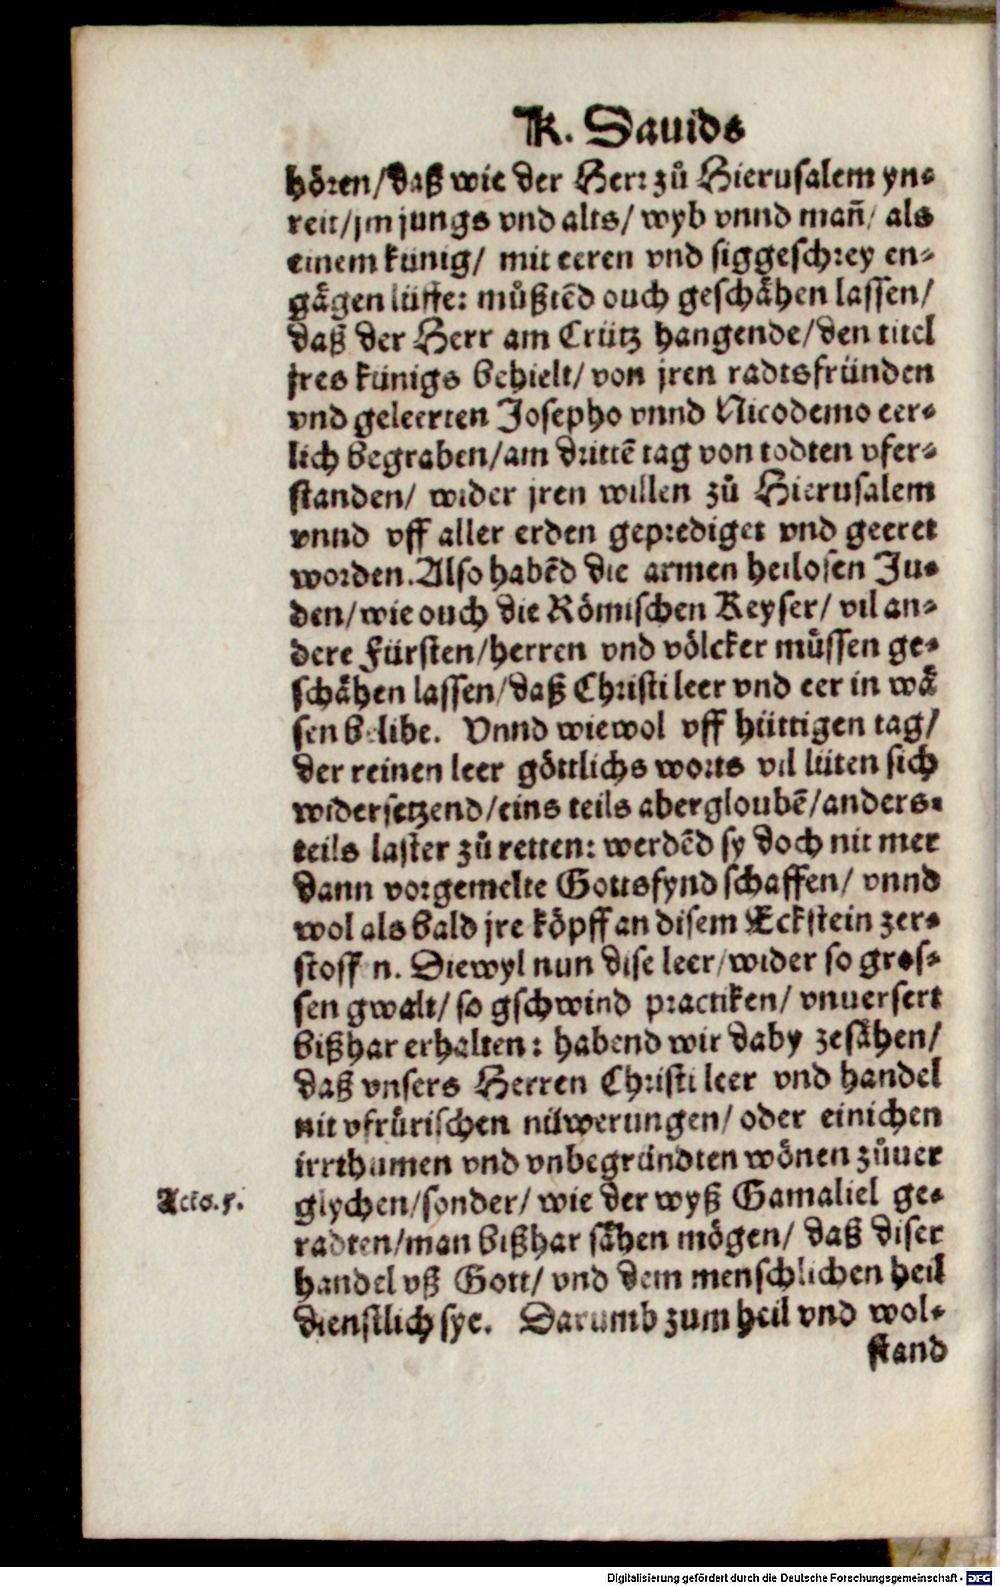 K. Dauids
hören/daß wie der Herr zů Hierusalem yn⸗
reit/jm jungs vnd alts/ wyb vnnd mañ/ als
einem künig/ mit eeren vnd siggeschrey en⸗
gägen lüffe: můßtēd ouch geschähen lassen/
daß der Herr am Crütz hangende/den titel
jres künigs behielt/ von jren radtsfründen
vnd geleerten Josepho vnnd Nicodemo eer⸗
lich begraben/am drittē tag von todten vfer⸗
standen/ wider jren willen zů Hierusalem
vnnd vff aller erden geprediget vnd geeret
worden. Also habēd die armen heilosen Ju⸗
den/wie ouch die Römischen Keyser/ vil an⸗
dere Fürsten/herren vnd völcker müssen ge⸗
schähen lassen/daß Christi leer vnd eer in wä
sen belibe. Vnnd wiewol vff hüttigen tag/
der reinen leer göttlichs worts vil lüten sich
widersetzend/eins teils abergloubē/anders⸗
teils laster zů retten: werdēd sy doch nit mer
dann vorgemelte Gottsfynd schaffen/ vnnd
wol als bald jre köpff an disem Eckstein zer⸗
stoffen. Diewyl nun dise leer/wider so gros⸗
sen gwalt/ so gschwind practiken/ vnuersert
bißhar erhalten: habend wir daby zesähen/
daß vnsers Herren Christi leer vnd handel
nit vfrürischen nüwerungen/ oder einichen
irrthumen vnd vnbegründten wönen zůuer
glychen/sonder/ wie der wyß Gamaliel ge⸗
Acto.5.
radten/man bißhar sähen mögen/ daß diser
handel vß Gott/ vnd dem menschlichen heil
dienstlich sye. Darumb zum heil vnd wol⸗
stand
Digitalisierung gefördert durch die Deutsche Forschungsgemeinschaft - DFG